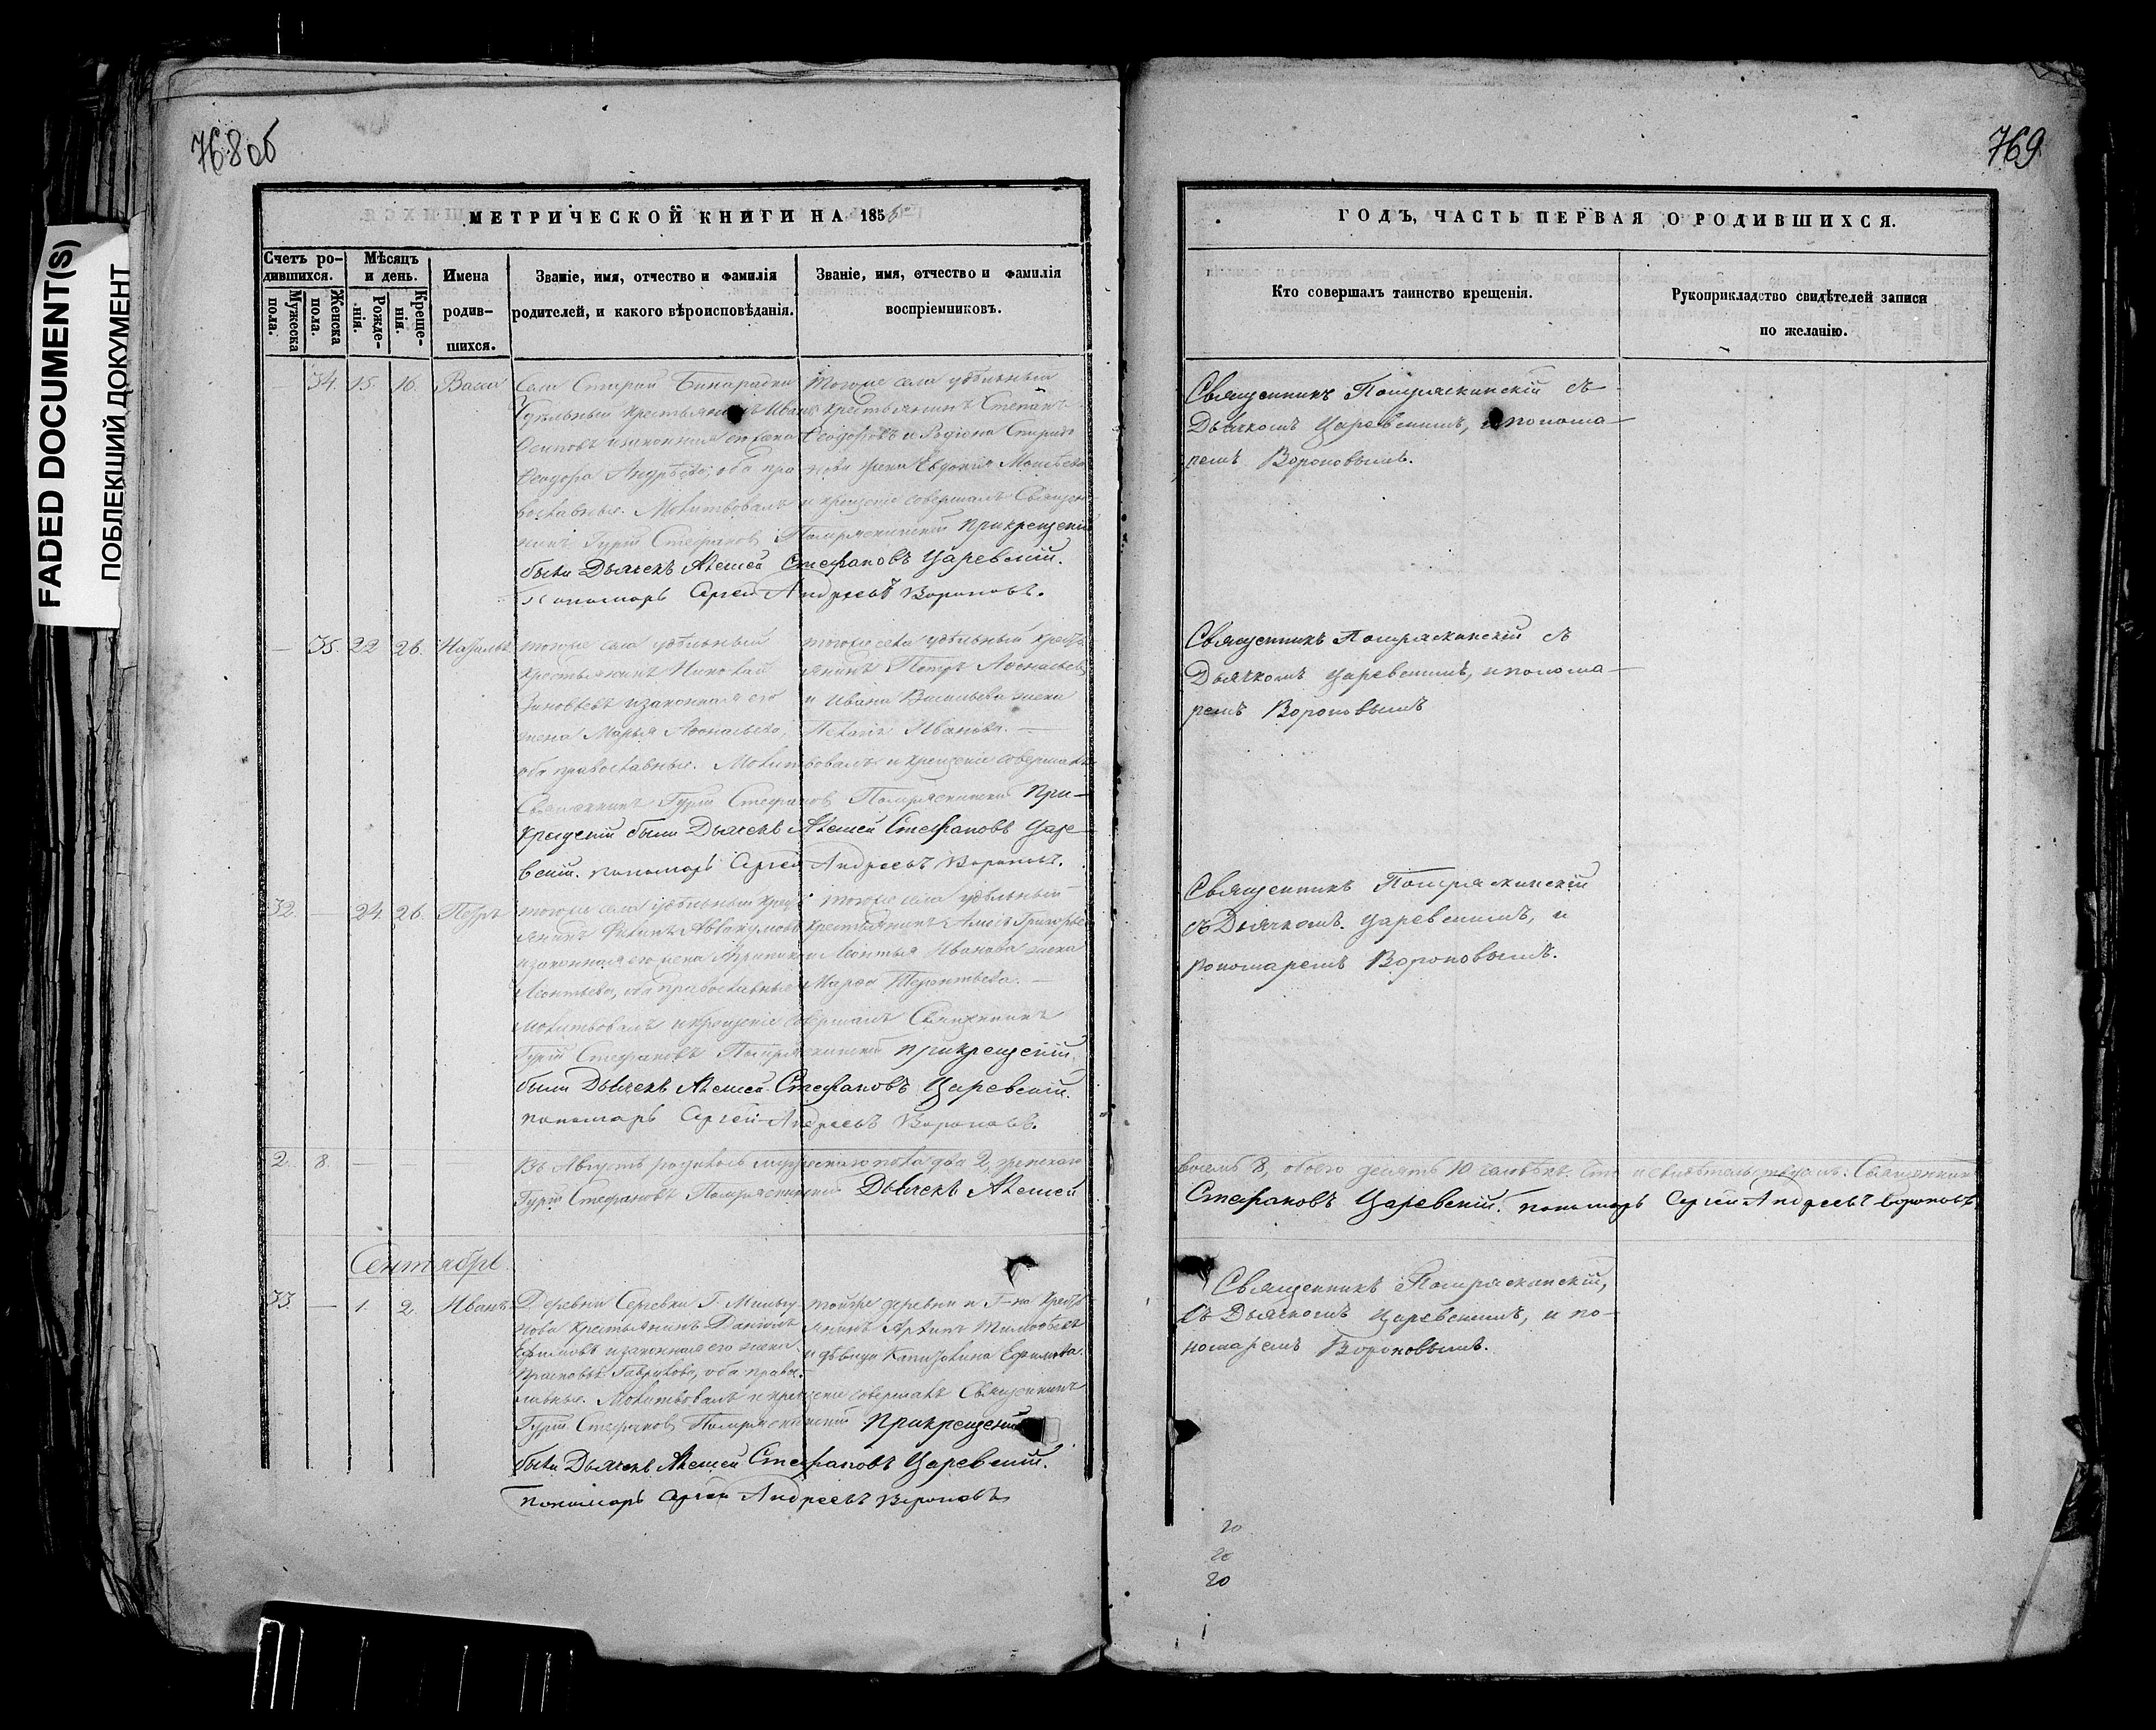 768 об
769
FADED DOCUMENT(S)
ПОБЛЕКЩИЙ ДОКУМЕНТ
МЕТРИЧЕСКОЙ КНИГИ НА 185
Счетъ ро-
дившихся.
Мужеска
пола.
Женска
пола.
Мѣсяцъ
и день.
Рожде-
нія.
Креще-
нія.
Имена
родив-
шихся.
Званіе, имя, отчество и фамилія
родителей, и какого вѣроисповѣданія.
Званіе, имя, отчество и фамилія
воспріемниковъ.
34. 15. 16. Васса
Села Старой Бинарадки
Удѣльный крестьянинъ Иванъ
Осиповъ и законная его жена
Ѳеодора Андрѣева, оба пра
вославные. Молитвовалъ и крещеніе совершалъ Священ-
никъ Гурій Стефановъ Помряскинскій При крещеніи
были Дьячекъ Алексей Стефановъ Царевскій.
Пономарь Сергей Андреевъ Вороновъ.
тогоже села удѣльный
крестьянинъ Степанъ
Ѳеодоровъ и Родіона Спиридо
нова жена Евдокія Моисѣева
— 35. 22 26. Наталья
тогоже села удѣльный
крестьянинъ Николай
Зиновьевъ и законная его
жена Марья Аѳонасьева,
оба православные. Молитвовалъ и крещеніе совершалъ
Священникъ Гурій Стефановъ Помряскинскій При-
крещеніи были Дьячекъ Алексей Стефановъ Царе-
вскій. пономарь Сергей Андреевъ Вороновъ.
тогоже села удѣльный кресть
янинъ Петръ Аѳонасьевъ
и Ивана Васильева жена
Ивановa. —
32. — 24. 26. Петръ
тогоже села удѣльный крест
янинъ Филипъ Аввакумовъ
и законная его жена
Леонтьева, оба православные
Молитвовалъ и крещеніе совершалъ Священникъ
Гурій Стефановъ Помряскинскій При крещеніи
были Дьячекъ Алексей Стефановъ Царевскій.
пономарь Сергей Андреевъ Вороновъ.
тогоже села удѣльный
крестьянинъ Григорьев
и Леонтья Иванова жена
Марѳа Терентьева. —
2. 8. — — —
Въ Августѣ родилось мужескаго пола два 2, женскаго
Гурій Стефановъ Помряскинскій Дьячекъ Алексей
Сентябрь
33. — 1. 2. Иванъ
Деревни Сергевки Г.
нова крестьянинъ Даніилъ
Ефимовъ и законная его жена
Прасковья Гаврилова, оба право-
славные. Молитвовалъ и крещеніе совершалъ Священникъ
Гурій Стефановъ Помряскинскій При крещеніи
были Дьячекъ Алексей Стефановъ Царевскій.
пономарь Сергей Андреевъ Вороновъ
тойже деревни и Г-на кресть
янинъ Архипъ Тимоѳѣевъ
и дѣвица Капитолина Ефимова.
ГОДЪ, ЧАСТЬ ПЕРВАЯ О РОДИВШИХСЯ.
Кто совершалъ таинство крещенія.
Рукоприкладство свидѣтелей записи
по желанію.
Священникъ Помряскинскій съ
Дьячкомъ Царевскимъ, и понома-
ремъ Вороновымъ.
Священникъ Помряскинскій съ
Дьячкомъ Царевскимъ, и понома-
ремъ Вороновымъ
Священникъ Помряскинскій
съ Дьячкомъ. Царевскимъ, и
пономаремъ Вороновымъ.
восемь 8, обоего десять 10 человѣкъ. Священникъ
Стефановъ Царевскій. пономарь Сергей Андреевъ Вороновъ
Священникъ Помряскинскій,
съ Дьячкомъ Царевскимъ, и по-
номаремъ Вороновымъ.
20
20
20